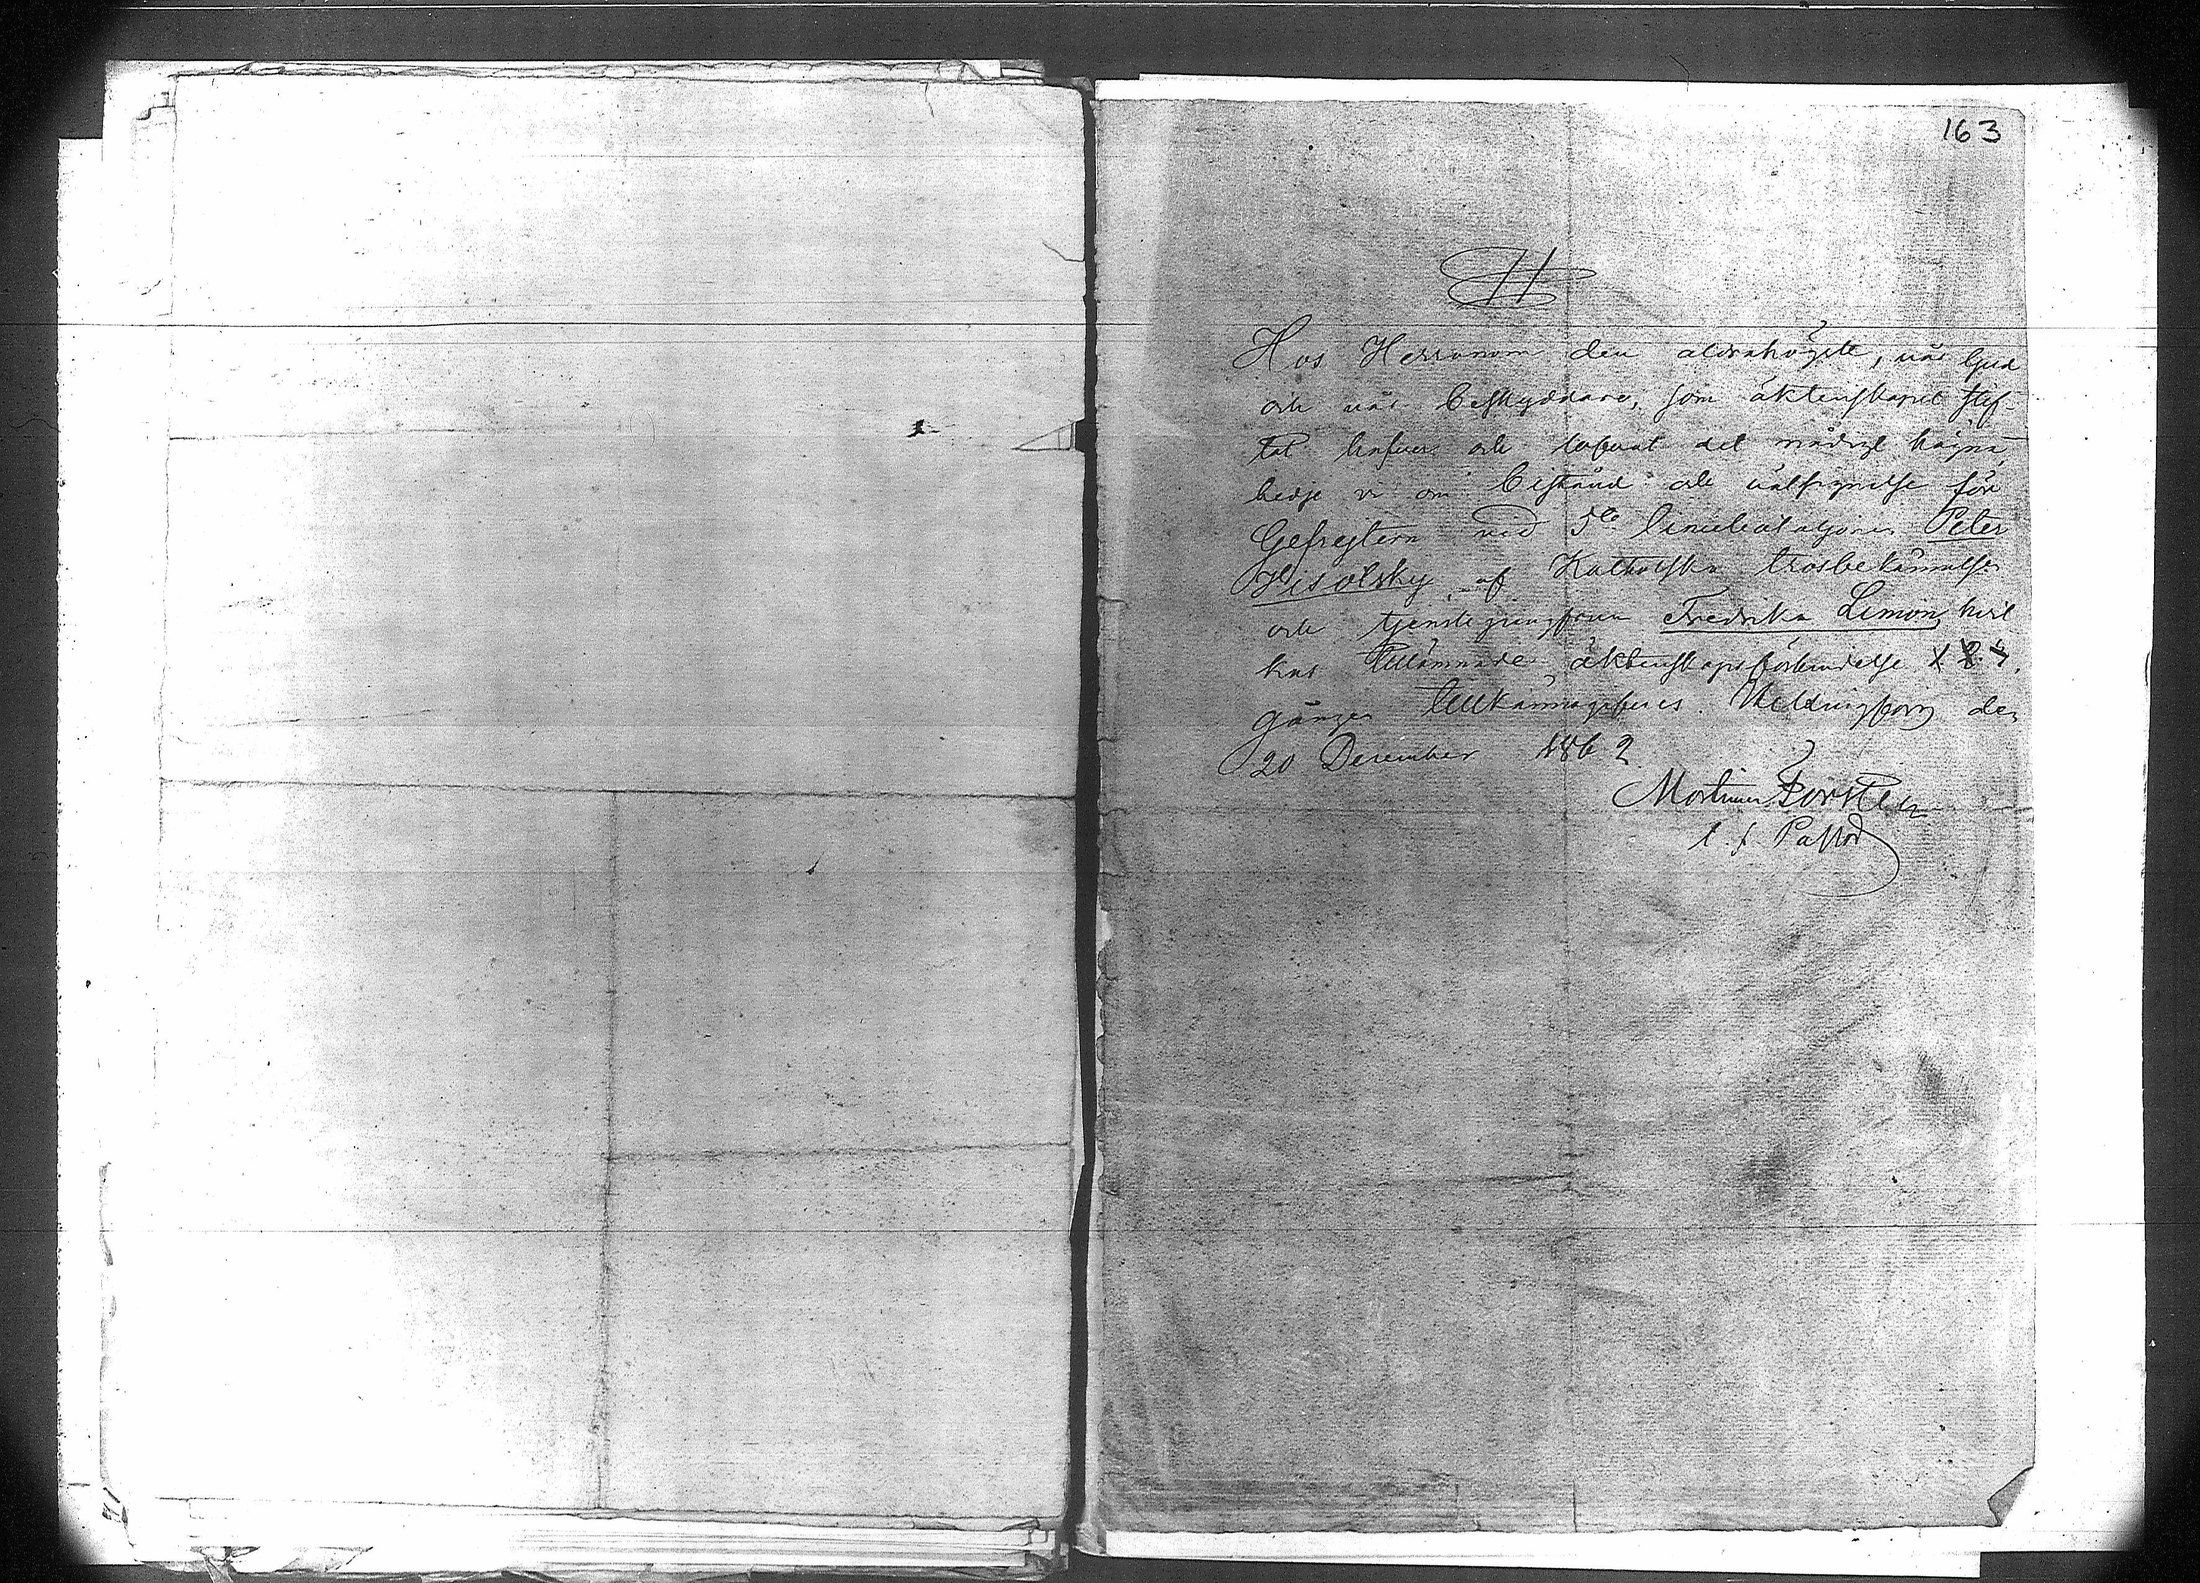 163
H
Hos Herranom den aldrahögste, vår Gud
och vår beskyddare, som äktenskapet stif-
tat hafver och lofvat det nådigt hägna,
bedje vi om bistånd och välsignelse för
Gefrejtern vid 5te Liniebataljonen Peter
Hisolsky, af Katholska trosbekännelsen
och tjenstejungfrun Fredrika Limon, hvil-
kas tillämnade äktenskapsförbindelse
gången tillkännagifves. Helsingfors den
20 December 1862
Mortimer Forstén
t. f. Pastor